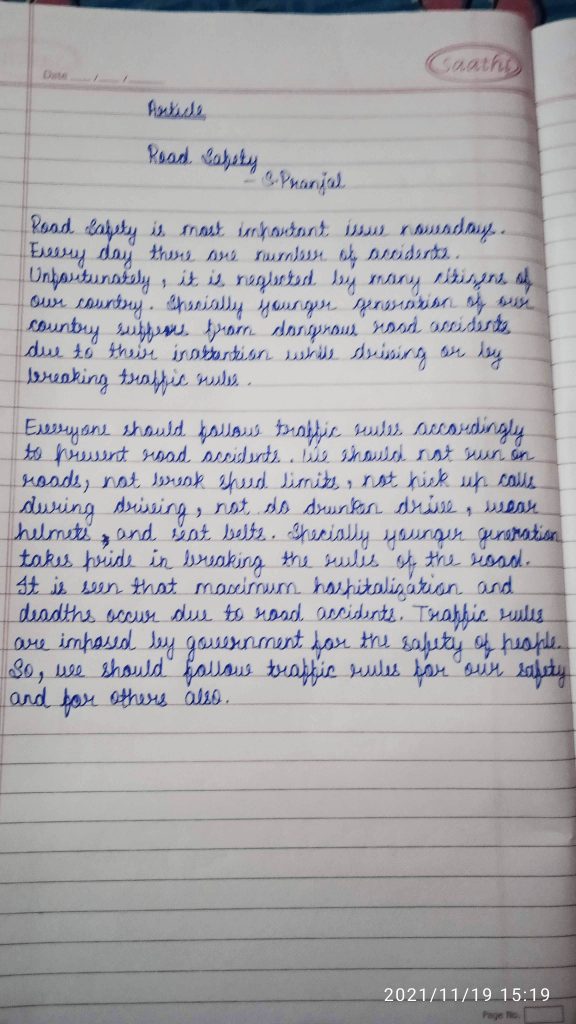 saathi
Date ___/___/______
Article
Road Safety
- S. Pranjal
Road Safety is most important issue nowadays.
Every day there are number of accidents.
Unfortunately, it is neglected by many citizens of
our country. Specially younger generation of our
country suffers from dangrous road accidents
due to their inattention while driving or by
breaking traffic rules.
Everyone should follow traffic rules accordingly
to prevent road accidents. We should not run on
roads, not break speed limits, not pick up calls
during driving, not do drunken drive, wear
helmets, and seat belts. Specially younger generation
takes pride in breaking the rules of the road.
It is seen that maximum hospitalization and
deadths occur due to road accidents. Traffic rules
are imposed by government for the safety of people.
So, we should follow traffic rules for our safety
and for others also.
2021/11/19 15:19
Page No.